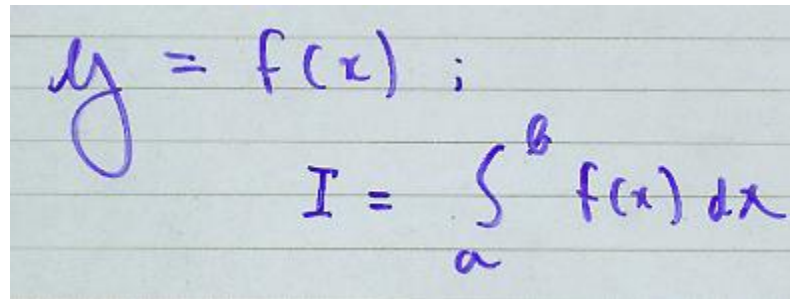 y = f(x) ;
I = ∫_a^b f(x) dx